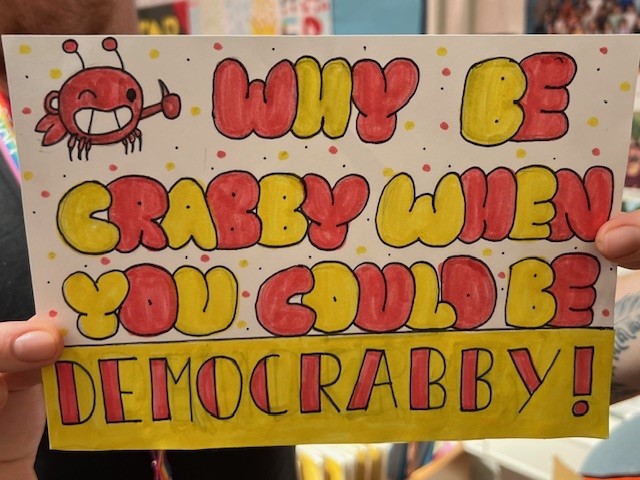 WHY BE
CRABBY WHEN
YOU COULD BE
DEMOCRABBY!